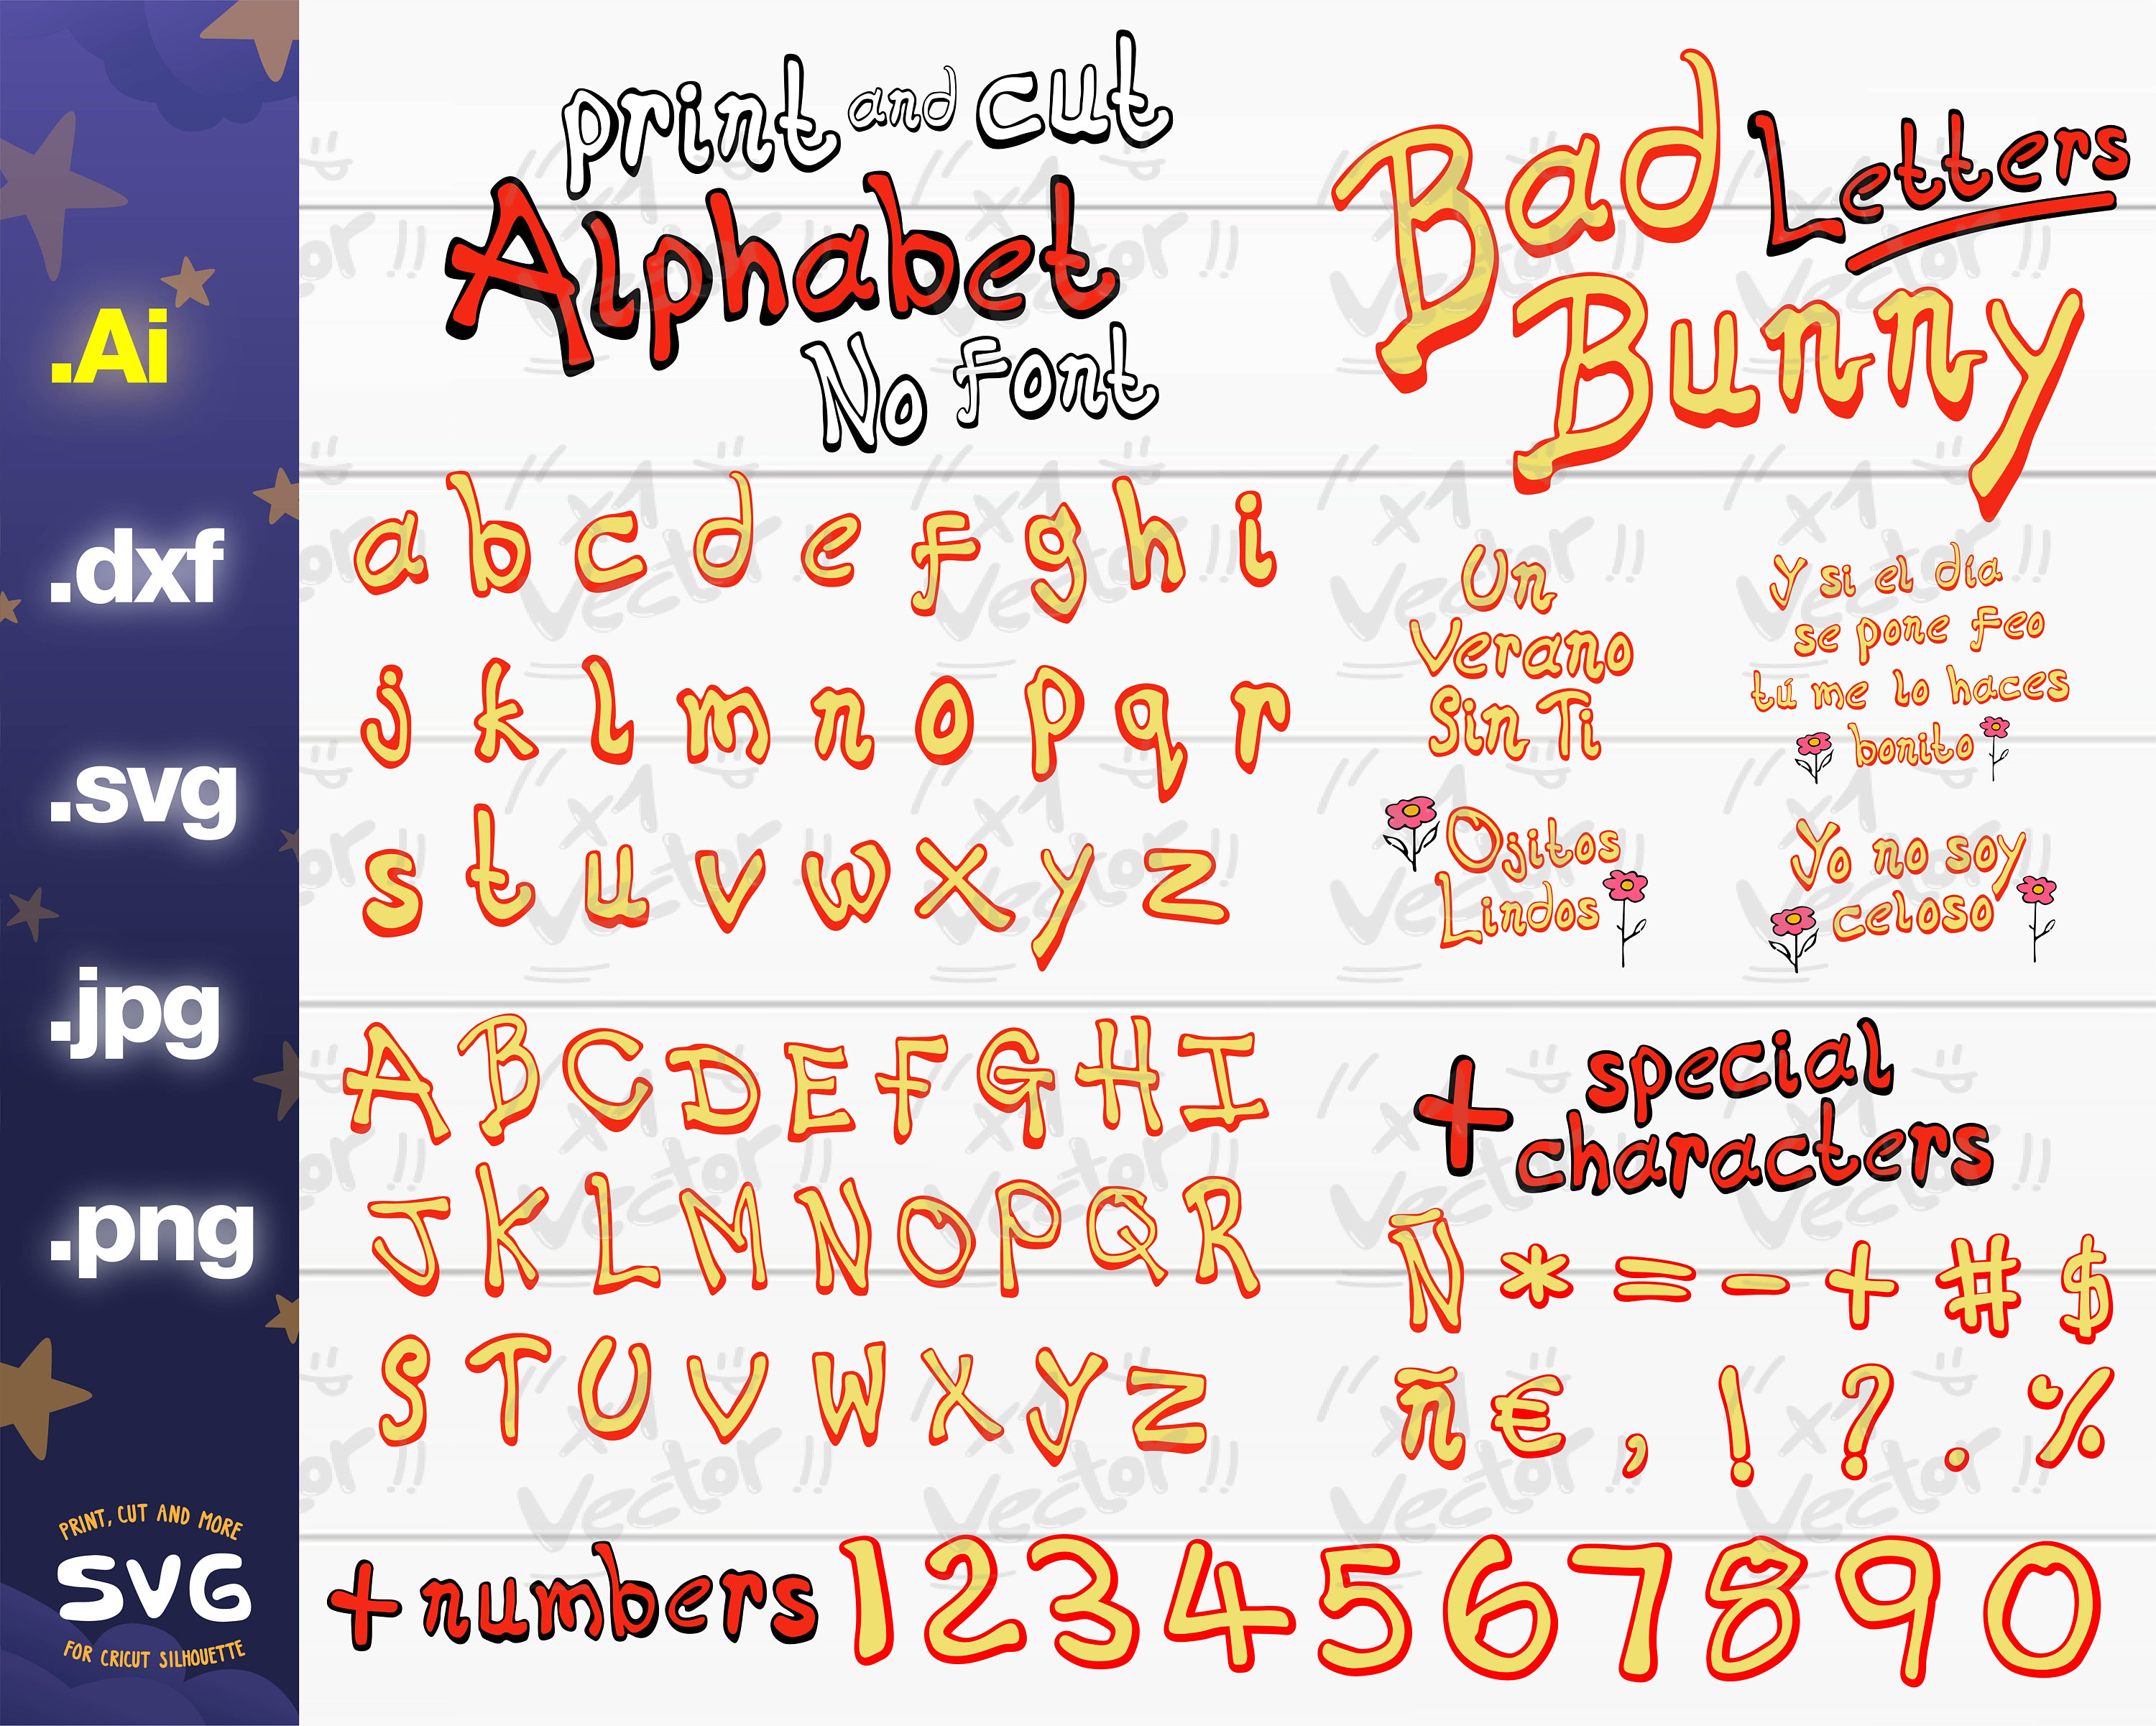 .Ai
.dxf
.svg
.jpg
.png
PRINT, CUT AND MORE
SVG
FOR CRICUT SILHOUETTE
print and cut
Alphabet
No font
Bad Letters
Bunny
a b c d e f g h i
j k l m n o p q r
s t u v w x y z
Un
Verano
Sin Ti
Y si el día
se pone feo
tú me lo haces
bonito
Ojitos
Lindos
Yo no soy
celoso
A B C D E F G H I
J K L M N O P Q R
S T U V W X Y Z
+ special
characters
Ñ * = - + # $
ñ € , ! ? . %
+ numbers 1 2 3 4 5 6 7 8 9 0
x1
Vector !!